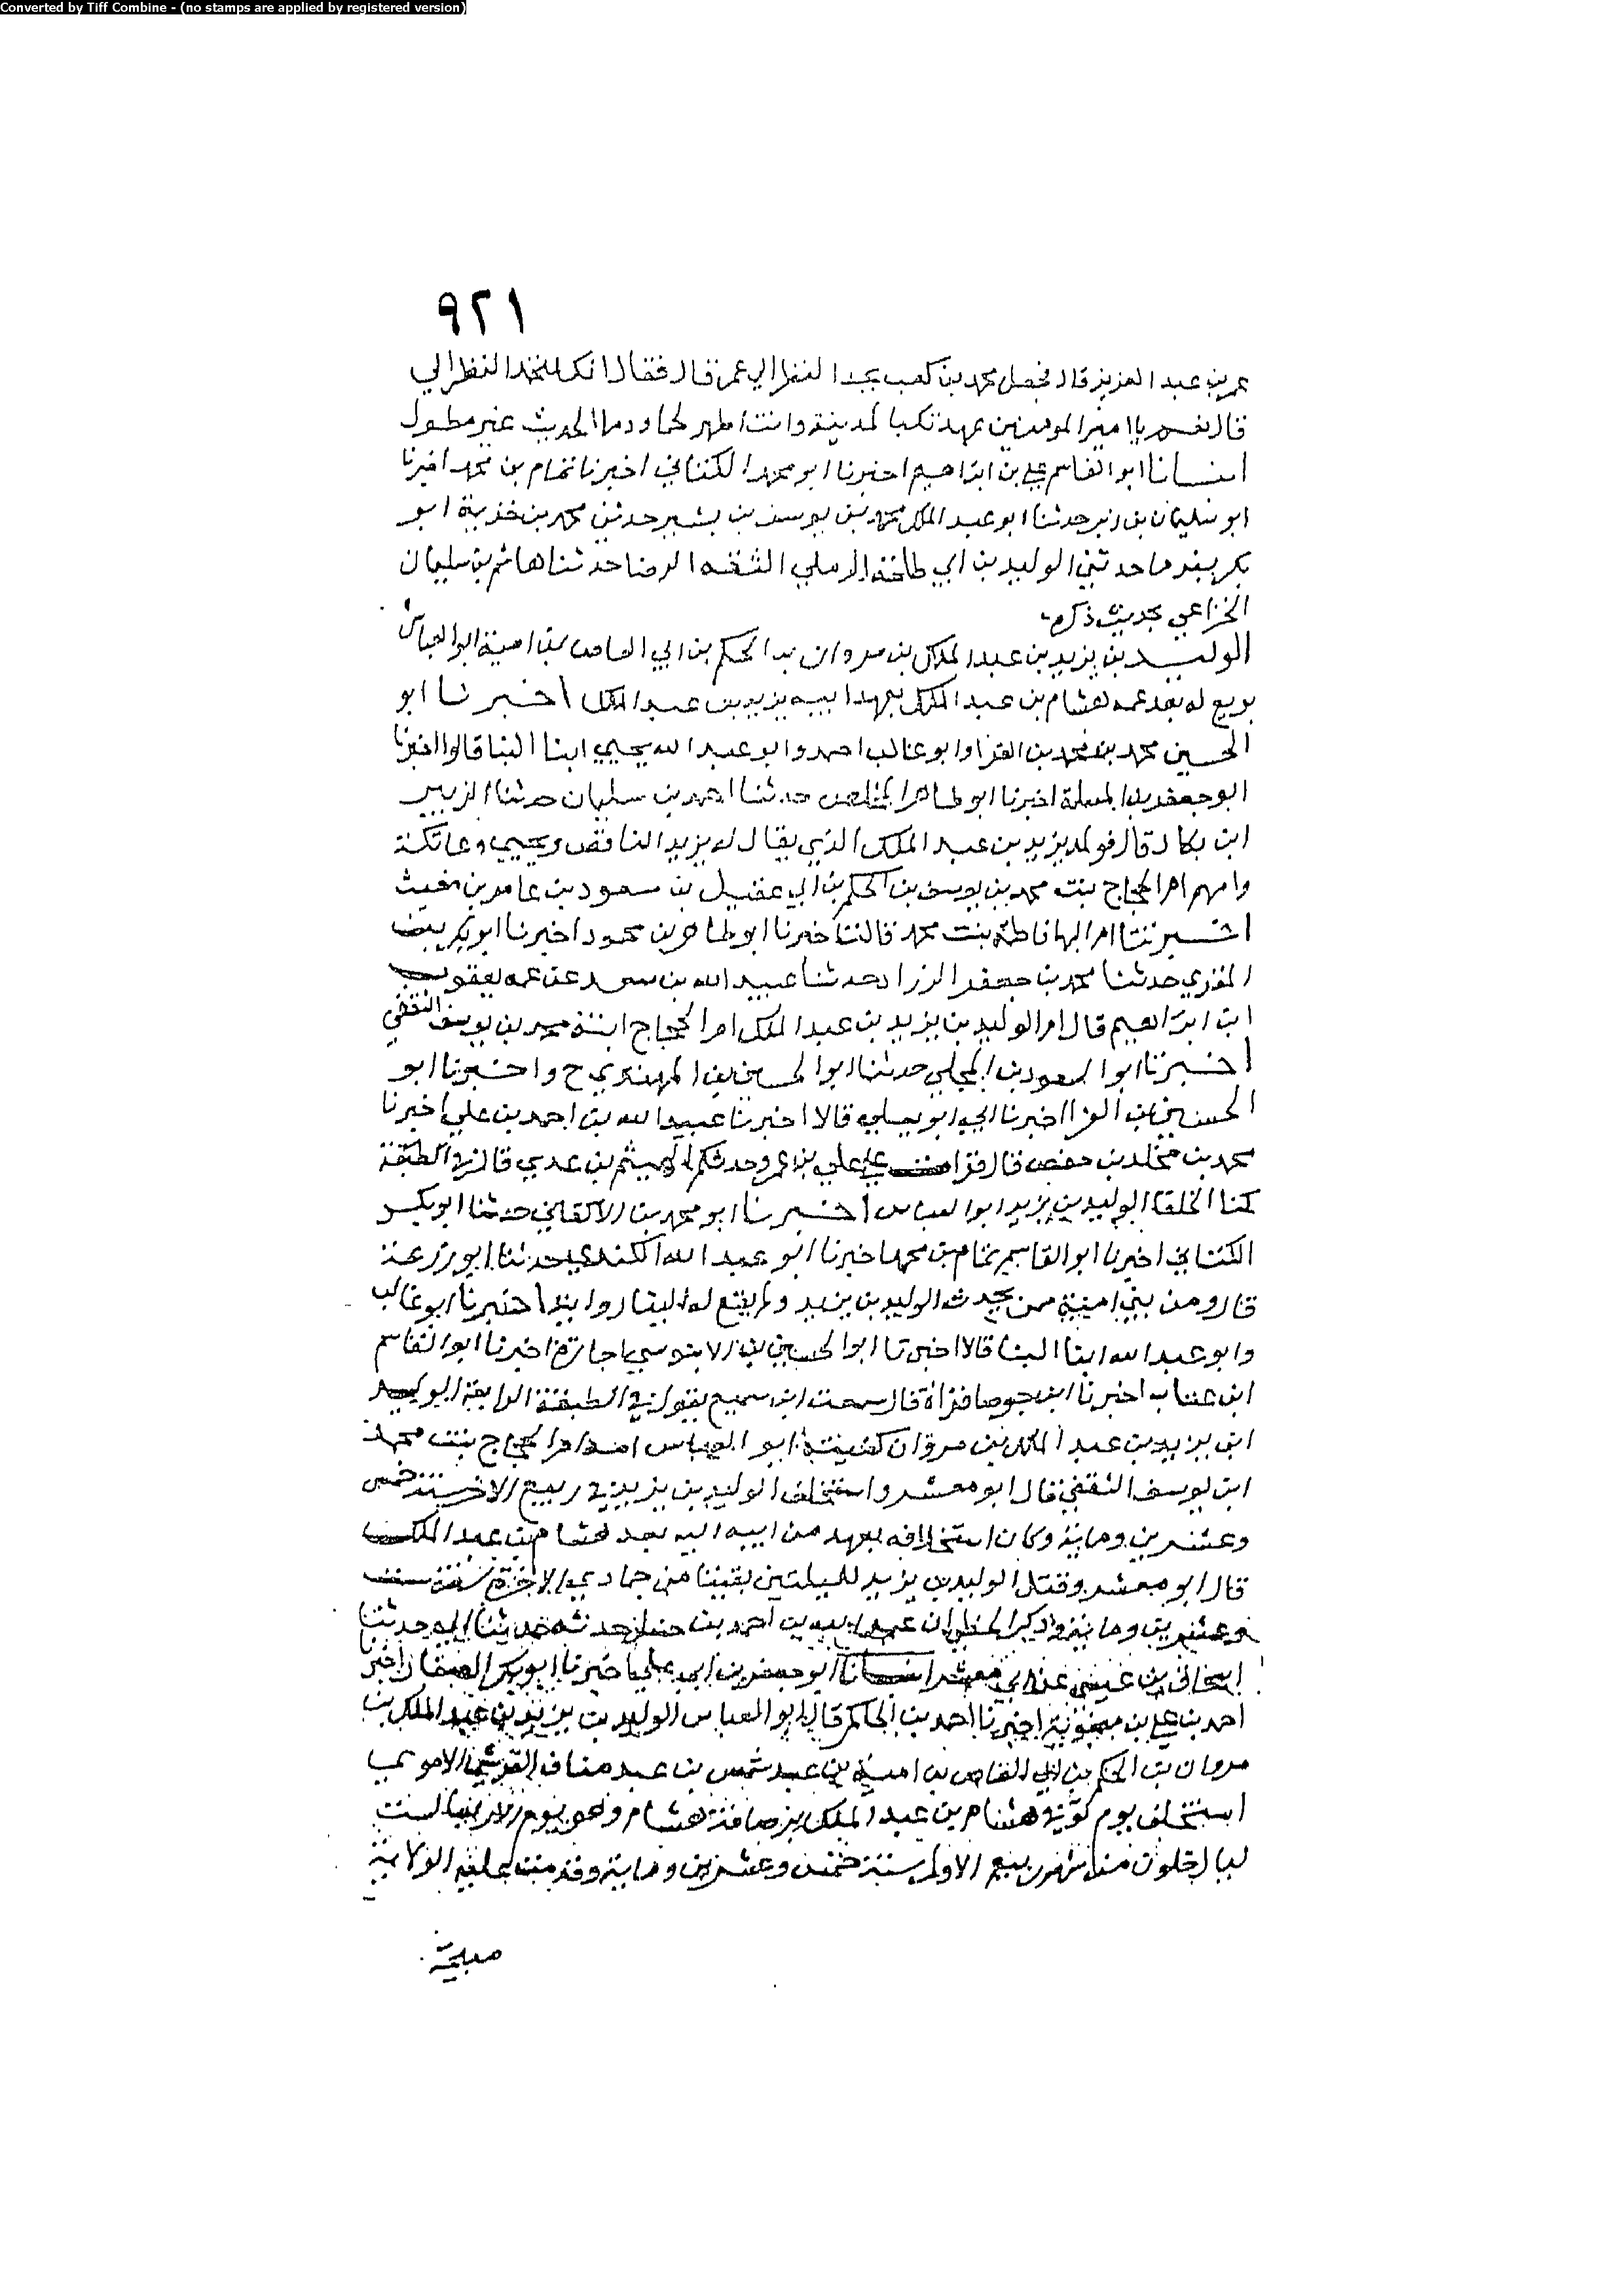 Converted by Tiff Combine - (no stamps are applied by registered version)
٩٢١
عمر بن عبد العزيز قال فجعل محمد بن كعب يحد النظر الي عمر قال فقال انك لتحد النظر الي
قال نعم يا امير المومنين عهدتك بالمدينة وانت اطهر لحما ودما الحديث غير مطول
انبانا ابو القاسم علي بن ابراهيم اخبرنا ابو محمد الكتاني اخبرنا تمام بن محمد اخبرنا
ابو سليمان بن زبر حدثنا ابو عبد الملك محمد بن يوسف بن بشير حدثني محمد بن خزيمة ابو
بكر حدثني الوليد بن ابي طلحة الرملي الثقه الرضا حدثنا هاشم بن سليمان
الخزاعي بحديث ذكره
الوليد بن يزيد بن عبد الملك بن مروان بن الحكم بن ابي العاص بن امية ابو العباس
بويع له بعد عمه هشام بن عبد الملك بعهد ابيه يزيد بن عبد الملك اخبرنا ابو
الحسين محمد بن محمد بن الفرا وابو غالب احمد وابو عبد الله يحيي ابنا البنا قالوا اخبرنا
ابو جعفر بن المسلمة اخبرنا ابو طاهر المخلص حدثنا احمد بن سليمان حدثنا الزبير
ابن بكار قال فولد يزيد بن عبد الملك الذي يقال له يزيد الناقص ويحيي وعاتكة
وامهم ام الحجاج بنت محمد بن يوسف بن الحكم بن ابي عقيل بن مسعود بن عامر بن مغيث
اخبرتنا ام البها فاطمة بنت محمد قالت اخبرنا ابو طاهر بن محمود اخبرنا ابو بكر بن
المقري حدثنا محمد بن جعفر الزراد حدثنا عبيد الله بن سعد عن عمه يعقوب
ابن ابراهيم قال ام الوليد بن يزيد بن عبد الملك ام الحجاج ابنة محمد بن يوسف الثقفي
اخبرنا ابو السعود بن المجلي حدثنا ابو الحسين بن المهتدي ح واخبرنا ابو
الحسين بن الفرا اخبرنا ابي ابو يعلي قالا اخبرنا عبيد الله بن احمد بن علي اخبرنا
محمد بن مخلد بن حفص قال قرات علي علي بن عمرو حدثكم الهيثم بن عدي قال في الطبقة
كنا الخلفا الوليد بن يزيد ابو العباس اخبرنا ابو محمد بن الاكفاني حدثنا ابو بكر
الكتاني اخبرنا ابو القاسم تمام بن محمد اخبرنا ابو عبد الله الكندي حدثنا ابو زرعة
قال ومن بني امية ممن يحدث الوليد بن يزيد ولم يقع له الينا رواية اخبرنا ابو غالب
وابو عبد الله ابنا البنا قالا اخبرنا ابو الحسين بن الابنوسي اجازة اخبرنا ابو القاسم
ابن عتاب اخبرنا ابن جوصا قراة قال سمعت ابن سميع يقول في الطبقة الرابعة الوليد
ابن يزيد بن عبد الملك بن مروان كنيته ابو العباس امه ام الحجاج بنت محمد
ابن يوسف الثقفي قال ابو معشر واستخلف الوليد بن يزيد في ربيع الاخر سنة خمس
وعشرين ومائة وكان استخلافه بعهد من ابيه اليه بعد هشام بن عبد الملك
قال ابو معشر وقتل الوليد بن يزيد لليلتين بقيتا من جمادي الاخرة سنة ست
وعشرين ومائة وذكر الخطبي ان عبد الله بن احمد بن حنبل حدثه حدثنا ابي حدثنا
اسحاق بن عيسي عن ابي معشر انبانا ابو جعفر بن ابي علي اخبرنا ابو بكر الصفار اخبرنا
احمد بن علي بن منجوية اخبرنا احمد بن الحاكم قال ابو العباس الوليد بن يزيد بن عبد الملك بن
مروان بن الحكم بن ابي العاص بن امية بن عبد شمس بن عبد مناف القرشي الاموي
استخلف يوم توفي هشام بن عبد الملك برصافة هشام وهو يوم الاربعا لست
ليال خلون من شهر ربيع الاول سنة خمس وعشرين ومائة وقدمت عليه الولاية
صبيحة